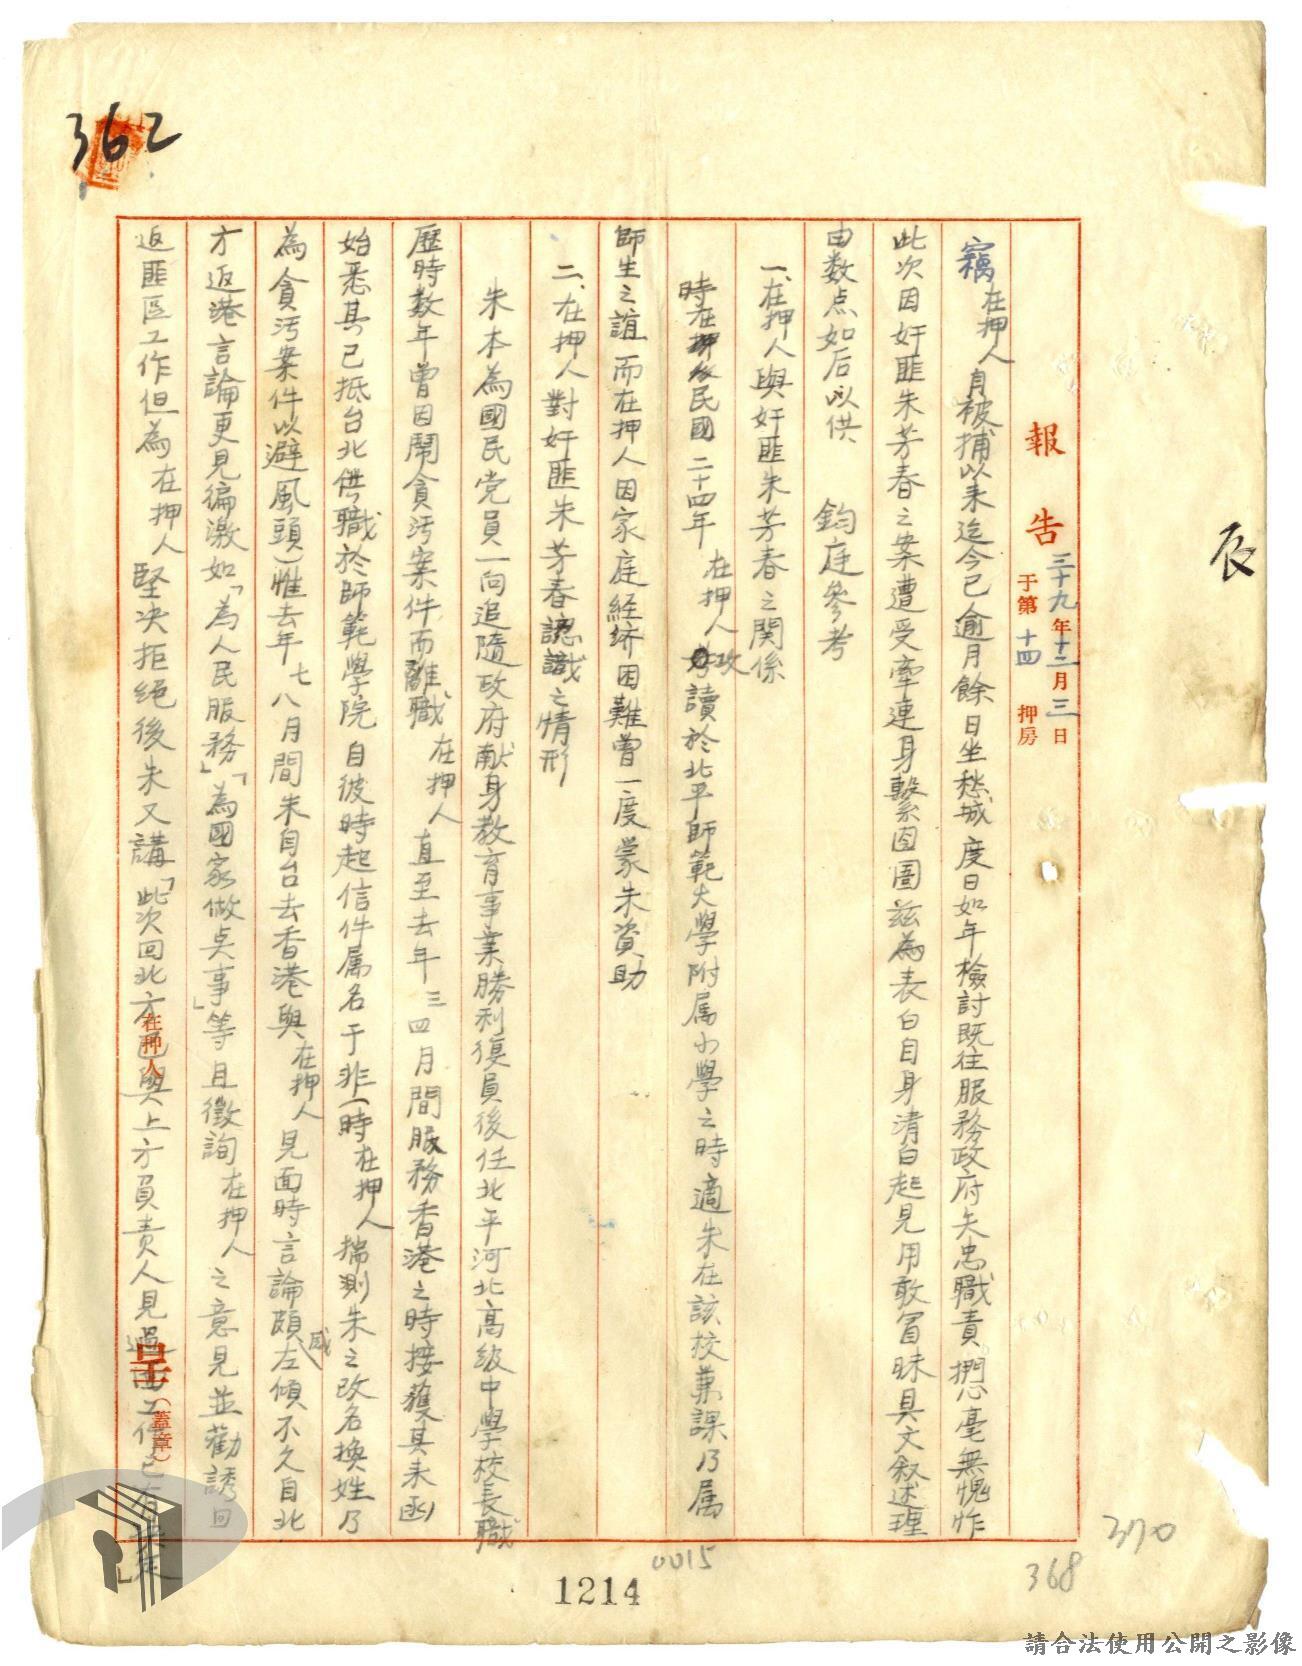 362
辰
報告 三十九年十二月三日
于第十四押房
竊在押人自被捕以來迄今已逾月餘日坐愁城度日如年檢討既往服務政府矢忠職責捫心毫無愧怍
此次因奸匪朱芳春之案遭受牽連身繫囹圄茲為表白自身清白起見用敢冒昧具文叙述理
由数点如后以供 鈞庭參考
一、在押人與奸匪朱芳春之関係
時在民國二十四年在押人攻讀於北平師範大學附属小學之時適朱在該校兼課乃属
師生之誼而在押人因家庭経济困難曾一度蒙朱資助
二、在押人對奸匪朱芳春認識之情形
朱本為國民党員一向追隨政府献身教育事業勝利復員後任北平河北高級中學校長職
歷時数年曾因鬧貪污案件而離職在押人直至去年三四月間服務香港之時接獲其来函
始悉其已抵台北供職於師範學院自彼時起信件属名于非(時在押人揣測朱之改名換姓乃
為貪污案件以避風頭)惟去年七八月間朱自台去香港與在押人見面時言論頗感左傾不久自北
方返港言論更見偏激如「為人民服務」「為國家做点事」等且徵詢在押人之意見並勸誘回
返匪區工作但為在押人堅决拒絕後朱又講「此次回北方已與上方負責人見過面工作已有决定」
在押人
呈(蓋章)
0015
1214
368
370
請合法使用公開之影像